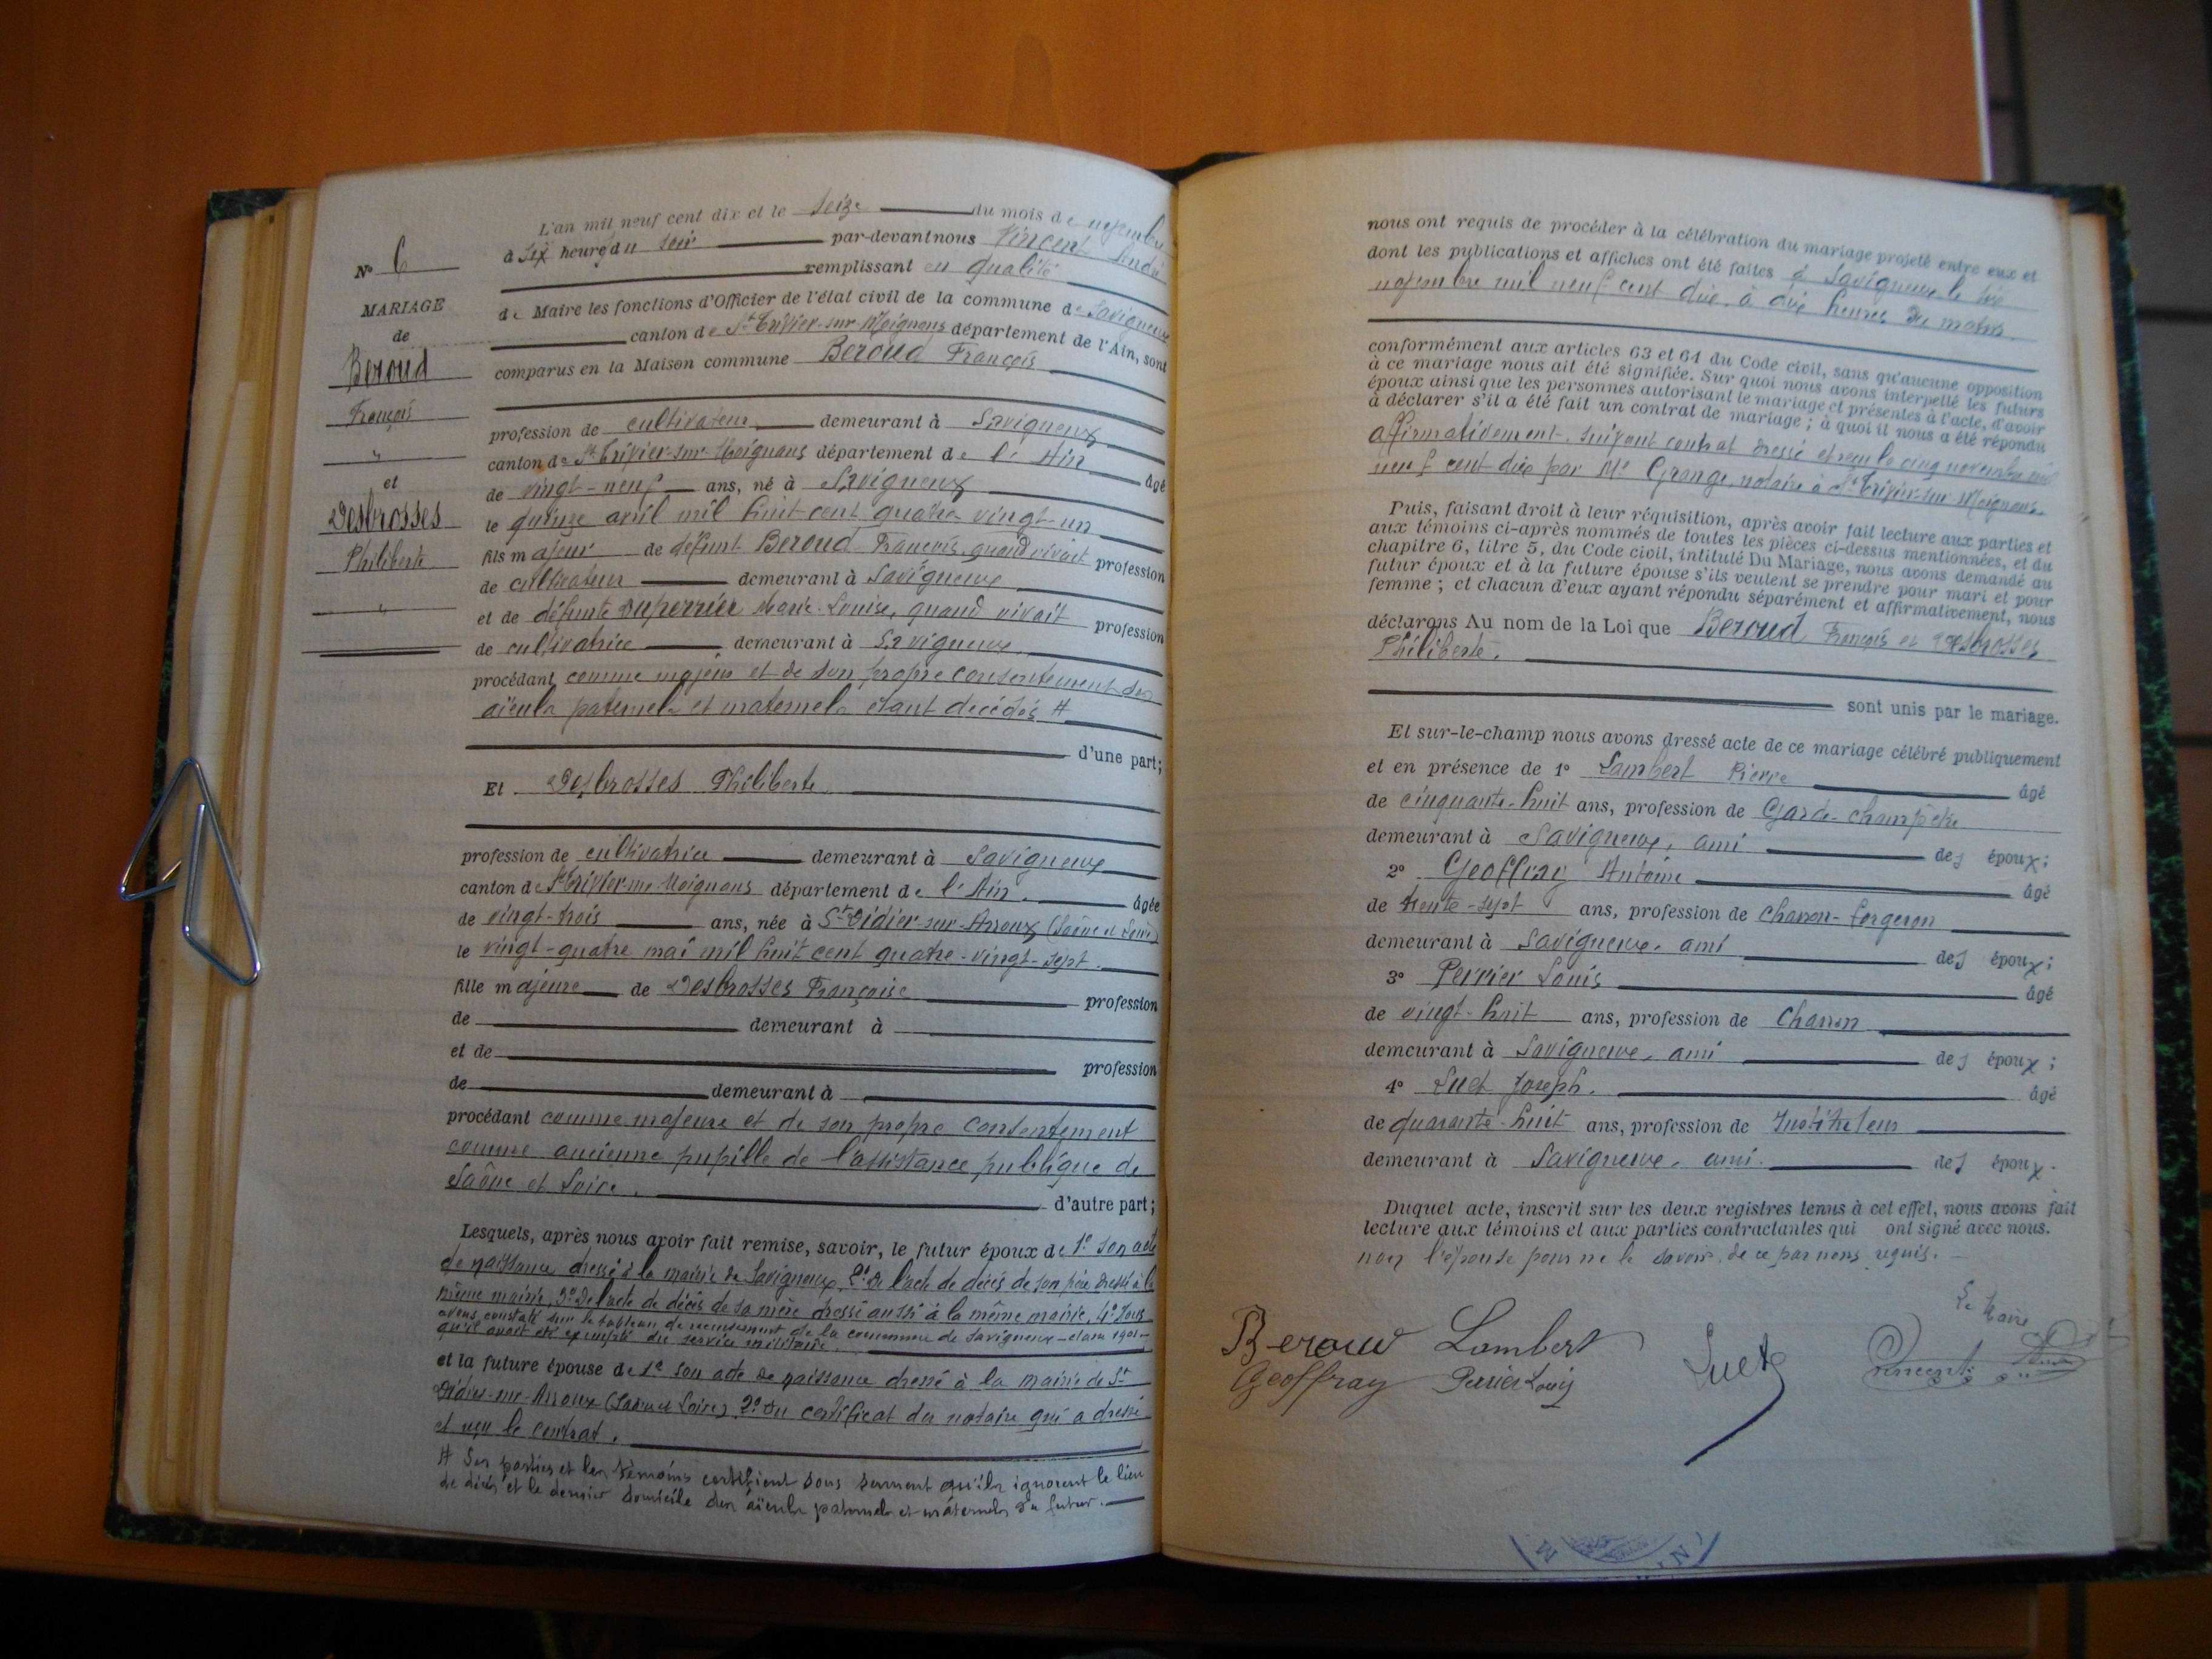 L'an mil neuf cent dix et le seize du mois de novembre
à six heures du soir par-devant nous Vincent
remplissant en qualité
de Maire les fonctions d'Officier de l'état civil de la commune de Savigneux
canton de St Trivier-sur-Moignans département de l'Ain, sont
comparus en la Maison commune Beroud François
profession de cultivateur demeurant à Savigneux
canton de St Trivier-sur-Moignans département de l'Ain âgé
de vingt-neuf ans, né à Savigneux
le quinze avril mil huit cent quatre-vingt-un
fils majeur de défunt Beroud François quand vivait profession
de cultivateur demeurant à Savigneux
et de défunte Duperrier Marie-Louise, quand vivait profession
de cultivatrice demeurant à Savigneux
procédant comme majeur et de son propre consentement des
aïeuls paternels et maternels étant décédés #
d'une part;
Et Desbrosses Philiberte
profession de cultivatrice demeurant à Savigneux
canton de St Trivier-sur-Moignans département de l'Ain. âgée
de vingt-trois ans, née à St Didier-sur-Arroux (Saône et Loire)
le vingt-quatre mai mil huit cent quatre-vingt-sept.
fille majeure de Desbrosses Françoise profession
de demeurant à
et de profession
de demeurant à
procédant comme majeure et de son propre consentement
comme ancienne pupille de l'assistance publique de
Saône et Loire. d'autre part;
Lesquels, après nous avoir fait remise, savoir, le futur époux de 1º son acte
de naissance dressé à la mairie de Savigneux, 2º de l'acte de décès de son père dressé à la
même mairie, 3º de l'acte de décès de sa mère dressé aussi à la même mairie, 4º Nous
avons constaté sur le tableau de recensement de la commune de Savigneux - classe 1901 -
qu'il avait été exempté du service militaire.
et la future épouse de 1º son acte de naissance dressé à la mairie de St
Didier-sur-Arroux (Saône et Loire) 2º du certificat du notaire qui a dressé
et reçu le contrat.
# Les parties et les témoins certifient sous serment qu'ils ignorent le lieu
de décès et le dernier domicile des aïeuls paternels et maternels du futur.
Nº 6
MARIAGE
de
Beroud
François
"
et
Desbrosses
Philiberte
"
nous ont requis de procéder à la célébration du mariage projeté entre eux et
dont les publications et affiches ont été faites à Savigneux le six
novembre mil neuf cent dix à dix heures du matin.
conformément aux articles 63 et 64 du Code civil, sans qu'aucune opposition
à ce mariage nous ait été signifiée. Sur quoi nous avons interpellé les futurs
époux ainsi que les personnes autorisant le mariage et présentes à l'acte, d'avoir
à déclarer s'il a été fait un contrat de mariage ; à quoi il nous a été répondu
affirmativement, suivant contrat dressé et reçu le cinq novembre mil
neuf cent dix par Me Grange, notaire à St Trivier-sur-Moignans.
Puis, faisant droit à leur réquisition, après avoir fait lecture aux parties et
aux témoins ci-après nommés de toutes les pièces ci-dessus mentionnées, et du
chapitre 6, titre 5, du Code civil, intitulé Du Mariage, nous avons demandé au
futur époux et à la future épouse s'ils veulent se prendre pour mari et pour
femme ; et chacun d'eux ayant répondu séparément et affirmativement, nous
déclarons Au nom de la Loi que Beroud François et Desbrosses
Philiberte.
sont unis par le mariage.
Et sur-le-champ nous avons dressé acte de ce mariage célébré publiquement
et en présence de 1º Lambert Pierre âgé
de cinquante-huit ans, profession de Garde-champêtre
demeurant à Savigneux, ami des époux;
2º Geoffray Antoine âgé
de trente-sept ans, profession de charron-forgeron
demeurant à Savigneux, ami des époux;
3º Perrier Louis âgé
de vingt-huit ans, profession de Charron
demeurant à Savigneux, ami des époux;
4º Suet Joseph. âgé
de quarante-huit ans, profession de Instituteur
demeurant à Savigneux, ami. des époux.
Duquel acte, inscrit sur les deux registres tenus à cet effet, nous avons fait
lecture aux témoins et aux parties contractantes qui ont signé avec nous.
non l'épouse pour ne le savoir, de ce par nous requis.
Le Maire
Beroud Lambert Suet Vincent
Geoffray Perrier Louis